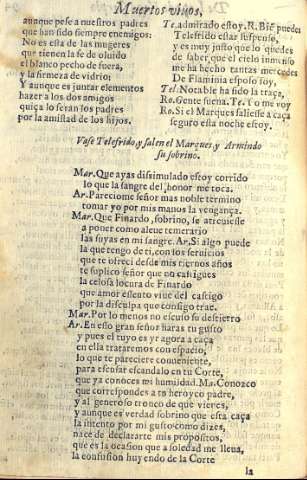 Muertos viuos,
aunque pese a nuestros padres
que han sido siempre enemigos:
No es esta de las mugeres
que tienen la fe de oluido
el blanco pecho de fuera,
y la firmeza de vidrio;
Y aunque es juntar elementos
hazer a los dos amigos
quiça lo seran los padres
por la amistad de los hijos.
Te. admirado estoy. R. Biē puedes
Telefrido estar suspenso,
y es muy justo que lo quedes
de saber que el cielo inmenso
me ha hecho tantas mercedes
De Flaminia esposo soy,
Tel. Notable ha sido la traça,
Ro. Gente suena. Te. Yo me voy
Ro. Si el Marques saliesse a caça
seguro esta noche estoy.
Vase Telefrido, y salen el Marques, y Armindo
su sobrino.
Mar. Que ayas dissimulado estoy corrido
lo que la sangre del honor me toca.
Ar. Pareciome señor mas noble termino
tomar yo por mis manos la vengança.
Mar. Que Finardo, sobrino, se atreuiesse
a poner como aleue temerario
las suyas en mi sangre. Ar. Si algo puede
la que tengo de ti, con los seruicios
que te ofreci desde mis tiernos años
te suplico señor que no castigues
la celosa locura de Finardo
que amor essento viue del castigo
por la disculpa que consigo trae.
Mar. Por lo menos no escuso su destierro
Ar. En esso gran señor haras tu gusto
y pues el tuyo es yr agora a caça
en ella trataremos con espacio,
lo que te pareciere conueniente,
para escusar escandalo en tu Corte,
que ya conoces mi humildad. Ma. Conozco
que correspondes a tu heroyco padre,
y al generoso tronco de que vienes,
y aunque es verdad sobrino que esta caça
la intento por mi gusto como dizes,
nace de declararte mis propositos,
que es la ocasion que a soledad me lleua,
la confusion huyendo de la Corte
la